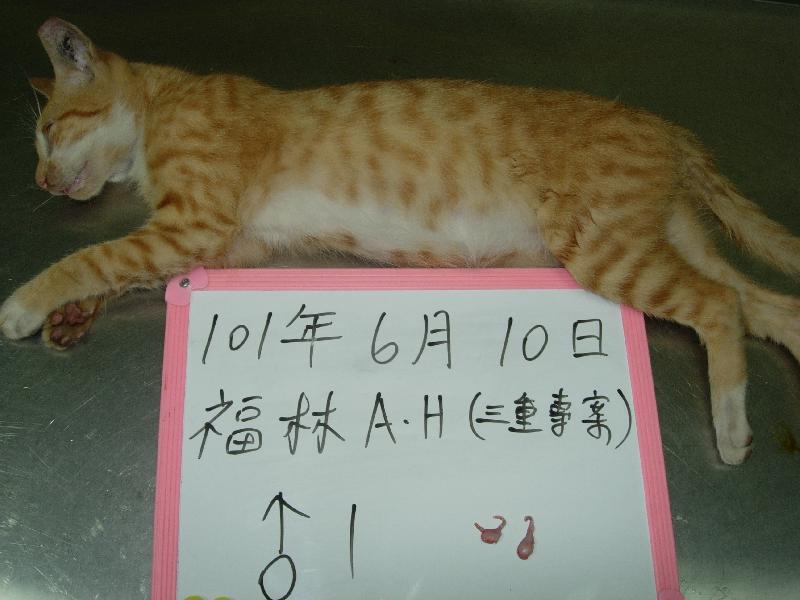 101年 6月 10日
福林 A.H (三重專案)
♂ 1